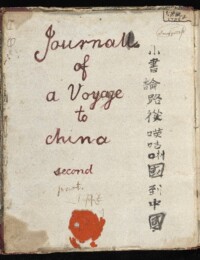 Journal
of
a Voyage
to
China
second
part
小書論路從國到中國